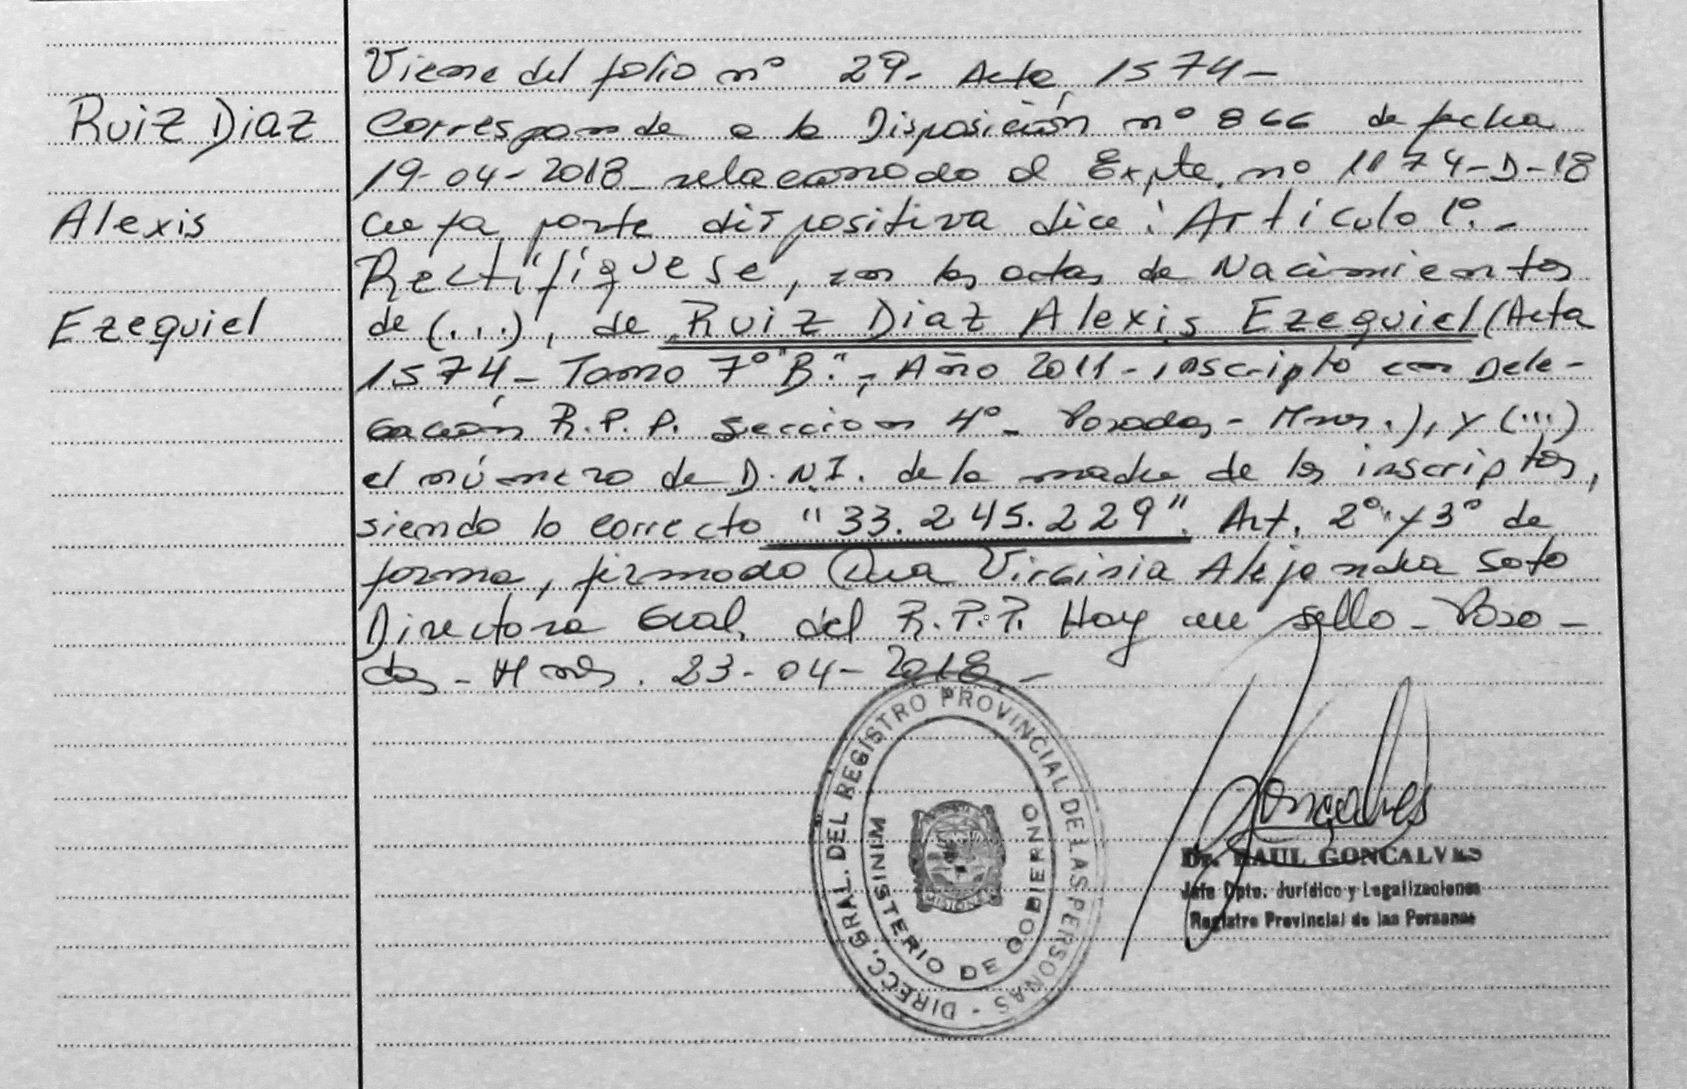 Viene del folio nº 29. Acta 1574-
Ruiz Diaz
Corresponde a la Disposición nº 866 de fecha
19-04-2018 relacionado al Expte. nº 1174-D-18
Alexis
cuya parte dispositiva dice: Artículo 1º.-
Rectifíquese, en las actas de Nacimientos
Ezequiel
de (...), de Ruiz Diaz Alexis Ezequiel (Acta
1574- Tomo 7º "B"-, Año 2011- inscripto en Dele-
gación R.P.P. Seccion 4º- Posadas- Mnes.), y (...)
el número de D.N.I. de la madre de los inscriptos,
siendo lo correcto "33.245.229". Art. 2º y 3º de
forma, firmado Dra Virginia Alejandra Soto
Directora Gral. del R.P.P. Hay un sello- Posa-
das- Mnes. 23-04-2018-
DIRECC. GRAL. DEL REGISTRO PROVINCIAL DE LAS PERSONAS -
MINISTERIO DE GOBIERNO
MISIONES
Goncalves
Dr. RAUL GONCALVES
Jefe Dpto. Jurídico y Legalizaciones
Registro Provincial de las Personas